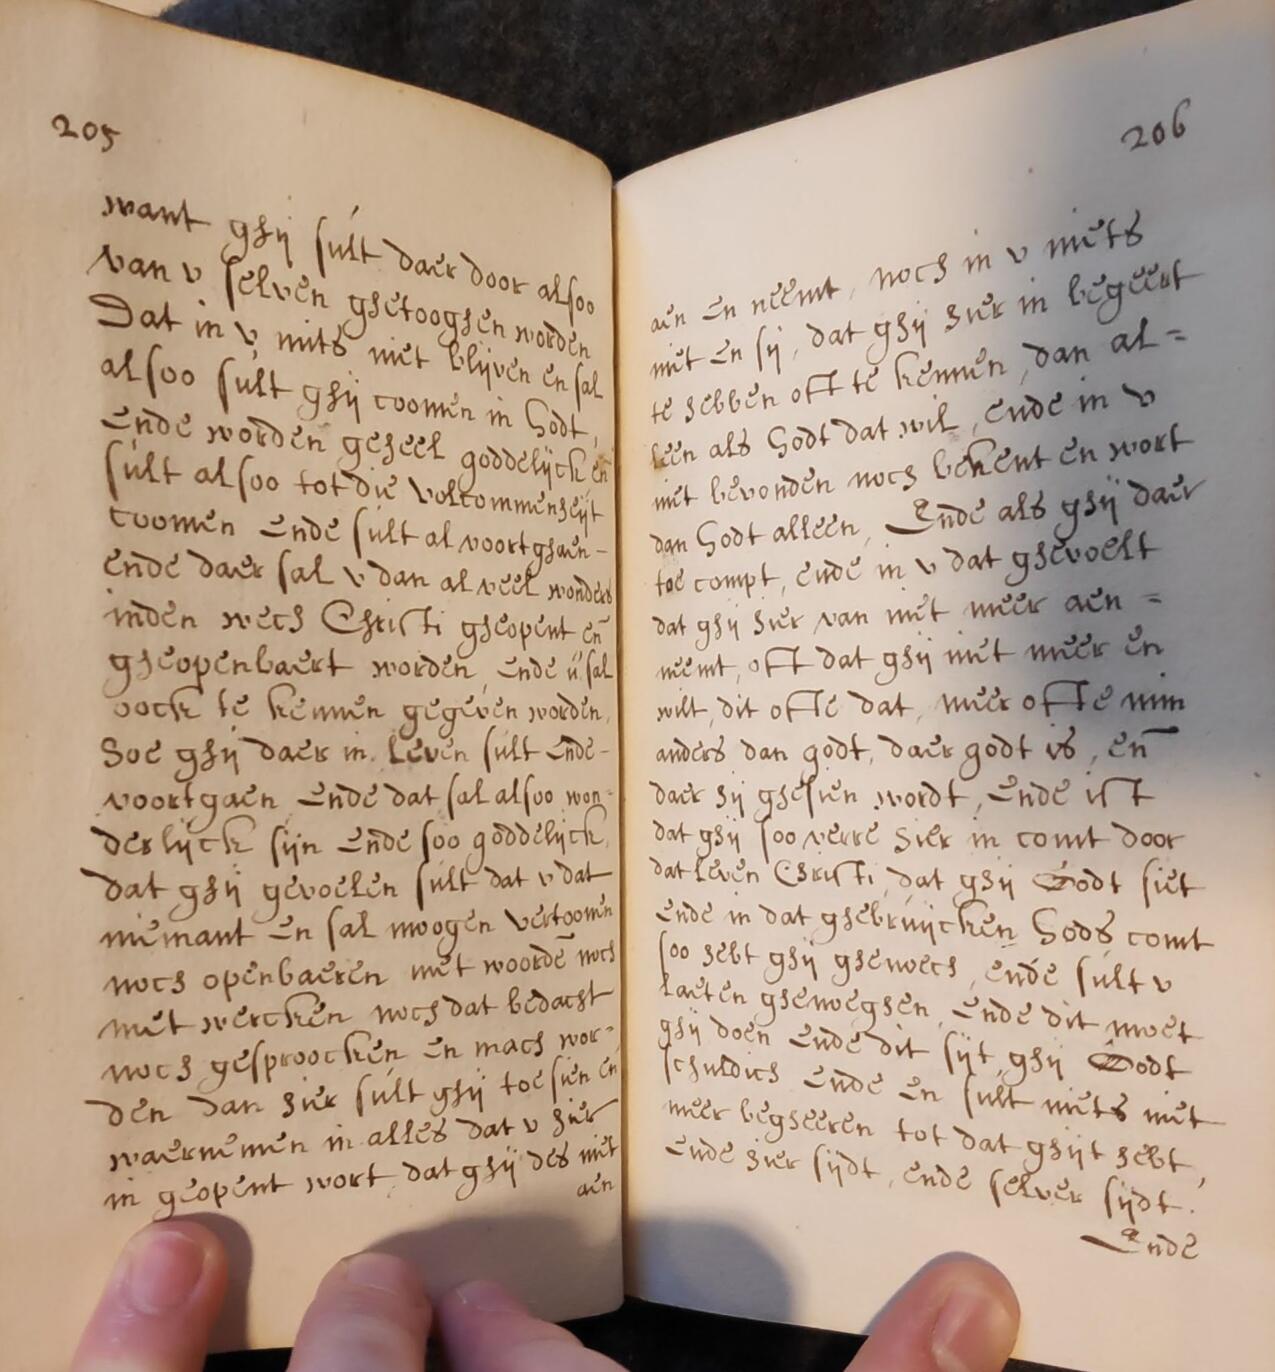 205
want ghij sult daer door alsoo
van v selven ghetooghen worden
Dat in v niets niet blijven en sal
alsoo sult ghij coomen in Godt,
ende worden geheel goddelijck en̄
sult alsoo tot die volcommenheijt
coomen ende sult al voortghaen-
ende daer sal v dan al veel wonders
inden wech Christi gheopent en̄
gheopenbaert worden, ende ú sal
oock te kennen gegeven worden,
hoe ghij daer in leven sult ende-
voortgaen ende dat sal alsoo won-
derlijck sijn ende soo goddelijck,
dat ghij gevoelen sult dat v dat
niemant en sal moogen vertoonen
noch openbaeren met woordē noch
met wercken noch dat bedacht
noch gesproocken en mach wor-
den dan hier sult ghij toe sien en
waernemen in alles dat v hier
in geopent wort, dat ghij des niet
aen
206
aen en neemt, noch in v niets
niet en sij, dat ghij hier in begeert
te hebben oft te kennen, dan al=
leen als Godt dat wil, ende in v
niet bevonden noch bekent en wort
dan Godt alleen, Ende als ghij daer
toe compt, ende in v dat ghevoelt
dat ghij hier van niet meer aen=
neemt, oft dat ghij niet meer en
wilt, dit ofte dat, meer ofte min
anders dan godt, daer godt is, en̄
daer hij ghesien wordt, ende ist
dat ghij soo verre hier in comt door
dat leven Christi, dat ghij Godt siet
ende in dat ghebruijcken Gods comt
soo hebt ghij ghenoech, ende sult v
laeten ghenoeghen, ende dit moet
ghij doen ende dit sijt ghij Godt
schuldich ende en sult niets niet
meer begheeren tot dat ghijt hebt,
ende hier sijdt, ende selver sijdt.
Ende